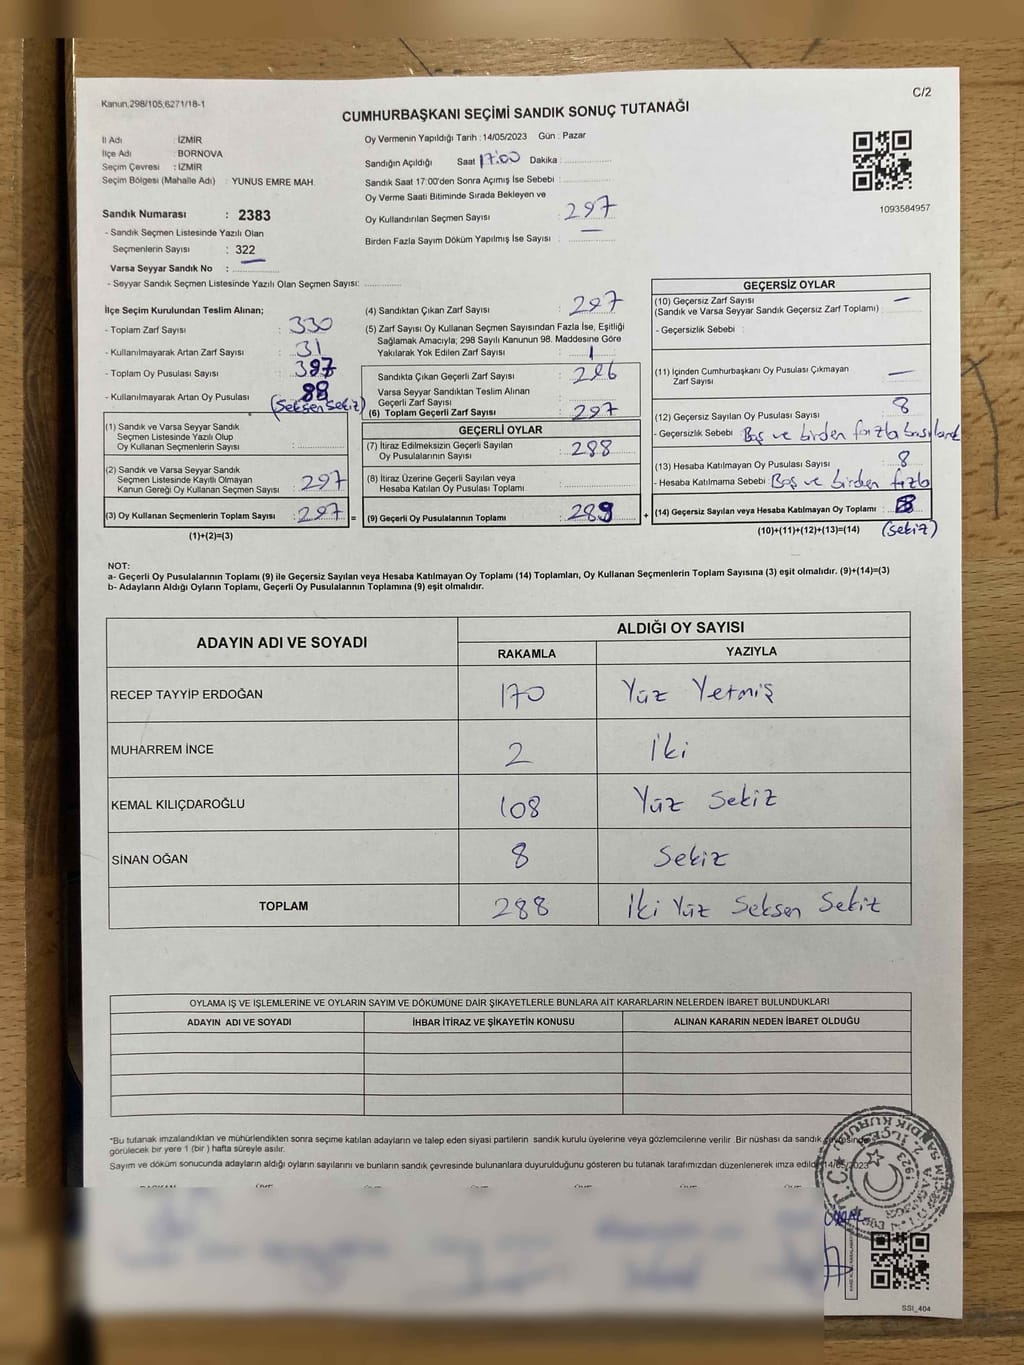 Kanun,298/105,6271/18-1
C/2
CUMHURBAŞKANI SEÇİMİ SANDIK SONUÇ TUTANAĞI
İl Adı : İZMİR
İlçe Adı : BORNOVA
Seçim Çevresi : İZMİR
Seçim Bölgesi (Mahalle Adı) : YUNUS EMRE MAH.
Sandık Numarası : 2383
- Sandık Seçmen Listesinde Yazılı Olan
Seçmenlerin Sayısı : 322
Varsa Seyyar Sandık No :
- Seyyar Sandık Seçmen Listesinde Yazılı Olan Seçmen Sayısı:
Oy Vermenin Yapıldığı Tarih : 14/05/2023 Gün : Pazar
Sandığın Açıldığı Saat 17:00 Dakika :
Sandık Saat 17:00'den Sonra Açımış İse Sebebi :
Oy Verme Saati Bitiminde Sırada Bekleyen ve
Oy Kullandırılan Seçmen Sayısı : 297
Birden Fazla Sayım Döküm Yapılmış İse Sayısı :
1093584957
İlçe Seçim Kurulundan Teslim Alınan;
- Toplam Zarf Sayısı : 330
- Kullanılmayarak Artan Zarf Sayısı : 31
- Toplam Oy Pusulası Sayısı :
- Kullanılmayarak Artan Oy Pusulası : 88
(Seksen Sekiz)
(1) Sandık ve Varsa Seyyar Sandık
Seçmen Listesinde Yazılı Olup
Oy Kullanan Seçmenlerin Sayısı :
(2) Sandık ve Varsa Seyyar Sandık
Seçmen Listesinde Kayıtlı Olmayan
Kanun Gereği Oy Kullanan Seçmen Sayısı : 297
(3) Oy Kullanan Seçmenlerin Toplam Sayısı : 297 =
(1)+(2)=(3)
(4) Sandıktan Çıkan Zarf Sayısı : 297
(5) Zarf Sayısı Oy Kullanan Seçmen Sayısından Fazla İse, Eşitliği
Sağlamak Amacıyla; 298 Sayılı Kanunun 98. Maddesine Göre
Yakılarak Yok Edilen Zarf Sayısı : 1
Sandıkta Çıkan Geçerli Zarf Sayısı : 296
Varsa Seyyar Sandıktan Teslim Alınan
Geçerli Zarf Sayısı :
(6) Toplam Geçerli Zarf Sayısı : 297
GEÇERLİ OYLAR
(7) İtiraz Edilmeksizin Geçerli Sayılan
Oy Pusulalarının Sayısı : 288
(8) İtiraz Üzerine Geçerli Sayılan veya
Hesaba Katılan Oy Pusulası Toplamı :
(9) Geçerli Oy Pusulalarının Toplamı : +
GEÇERSİZ OYLAR
(10) Geçersiz Zarf Sayısı —
(Sandık ve Varsa Seyyar Sandık Geçersiz Zarf Toplamı) :
- Geçersizlik Sebebi :
(11) İçinden Cumhurbaşkanı Oy Pusulası Çıkmayan —
Zarf Sayısı :
(12) Geçersiz Sayılan Oy Pusulası Sayısı : 8
- Geçersizlik Sebebi : Boş ve birden fazla
(13) Hesaba Katılmayan Oy Pusulası Sayısı : 8
- Hesaba Katılmama Sebebi : Boş ve birden fazla
(14) Geçersiz Sayılan veya Hesaba Katılmayan Oy Toplamı : 8
(10)+(11)+(12)+(13)=(14) (Sekiz)
NOT:
a- Geçerli Oy Pusulalarının Toplamı (9) ile Geçersiz Sayılan veya Hesaba Katılmayan Oy Toplamı (14) Toplamları, Oy Kullanan Seçmenlerin Toplam Sayısına (3) eşit olmalıdır. (9)+(14)=(3)
b- Adayların Aldığı Oyların Toplamı, Geçerli Oy Pusulalarının Toplamına (9) eşit olmalıdır.
ADAYIN ADI VE SOYADI
ALDIĞI OY SAYISI
RAKAMLA YAZIYLA
RECEP TAYYİP ERDOĞAN 170 Yüz Yetmiş
MUHARREM İNCE 2 İki
KEMAL KILIÇDAROĞLU 108 Yüz Sekiz
SİNAN OĞAN 8 Sekiz
TOPLAM 288 İki Yüz Seksen Sekiz
OYLAMA İŞ VE İŞLEMLERİNE VE OYLARIN SAYIM VE DÖKÜMÜNE DAİR ŞİKAYETLERLE BUNLARA AİT KARARLARIN NELERDEN İBARET BULUNDUKLARI
ADAYIN ADI VE SOYADI İHBAR İTİRAZ VE ŞİKAYETİN KONUSU ALINAN KARARIN NEDEN İBARET OLDUĞU
*Bu tutanak imzalandıktan ve mühürlendikten sonra seçime katılan adayların ve talep eden siyasi partilerin sandık kurulu üyelerine veya gözlemcilerine verilir .Bir nüshası da sandık çevresinde
görülecek bir yere 1 (bir ) hafta süreyle asılır.
Sayım ve döküm sonucunda adayların aldığı oyların sayılarını ve bunların sandık çevresinde bulunanlara duyurulduğunu gösteren bu tutanak tarafımızdan düzenlenerek imza edildi. 14/05/2023
SSI_404